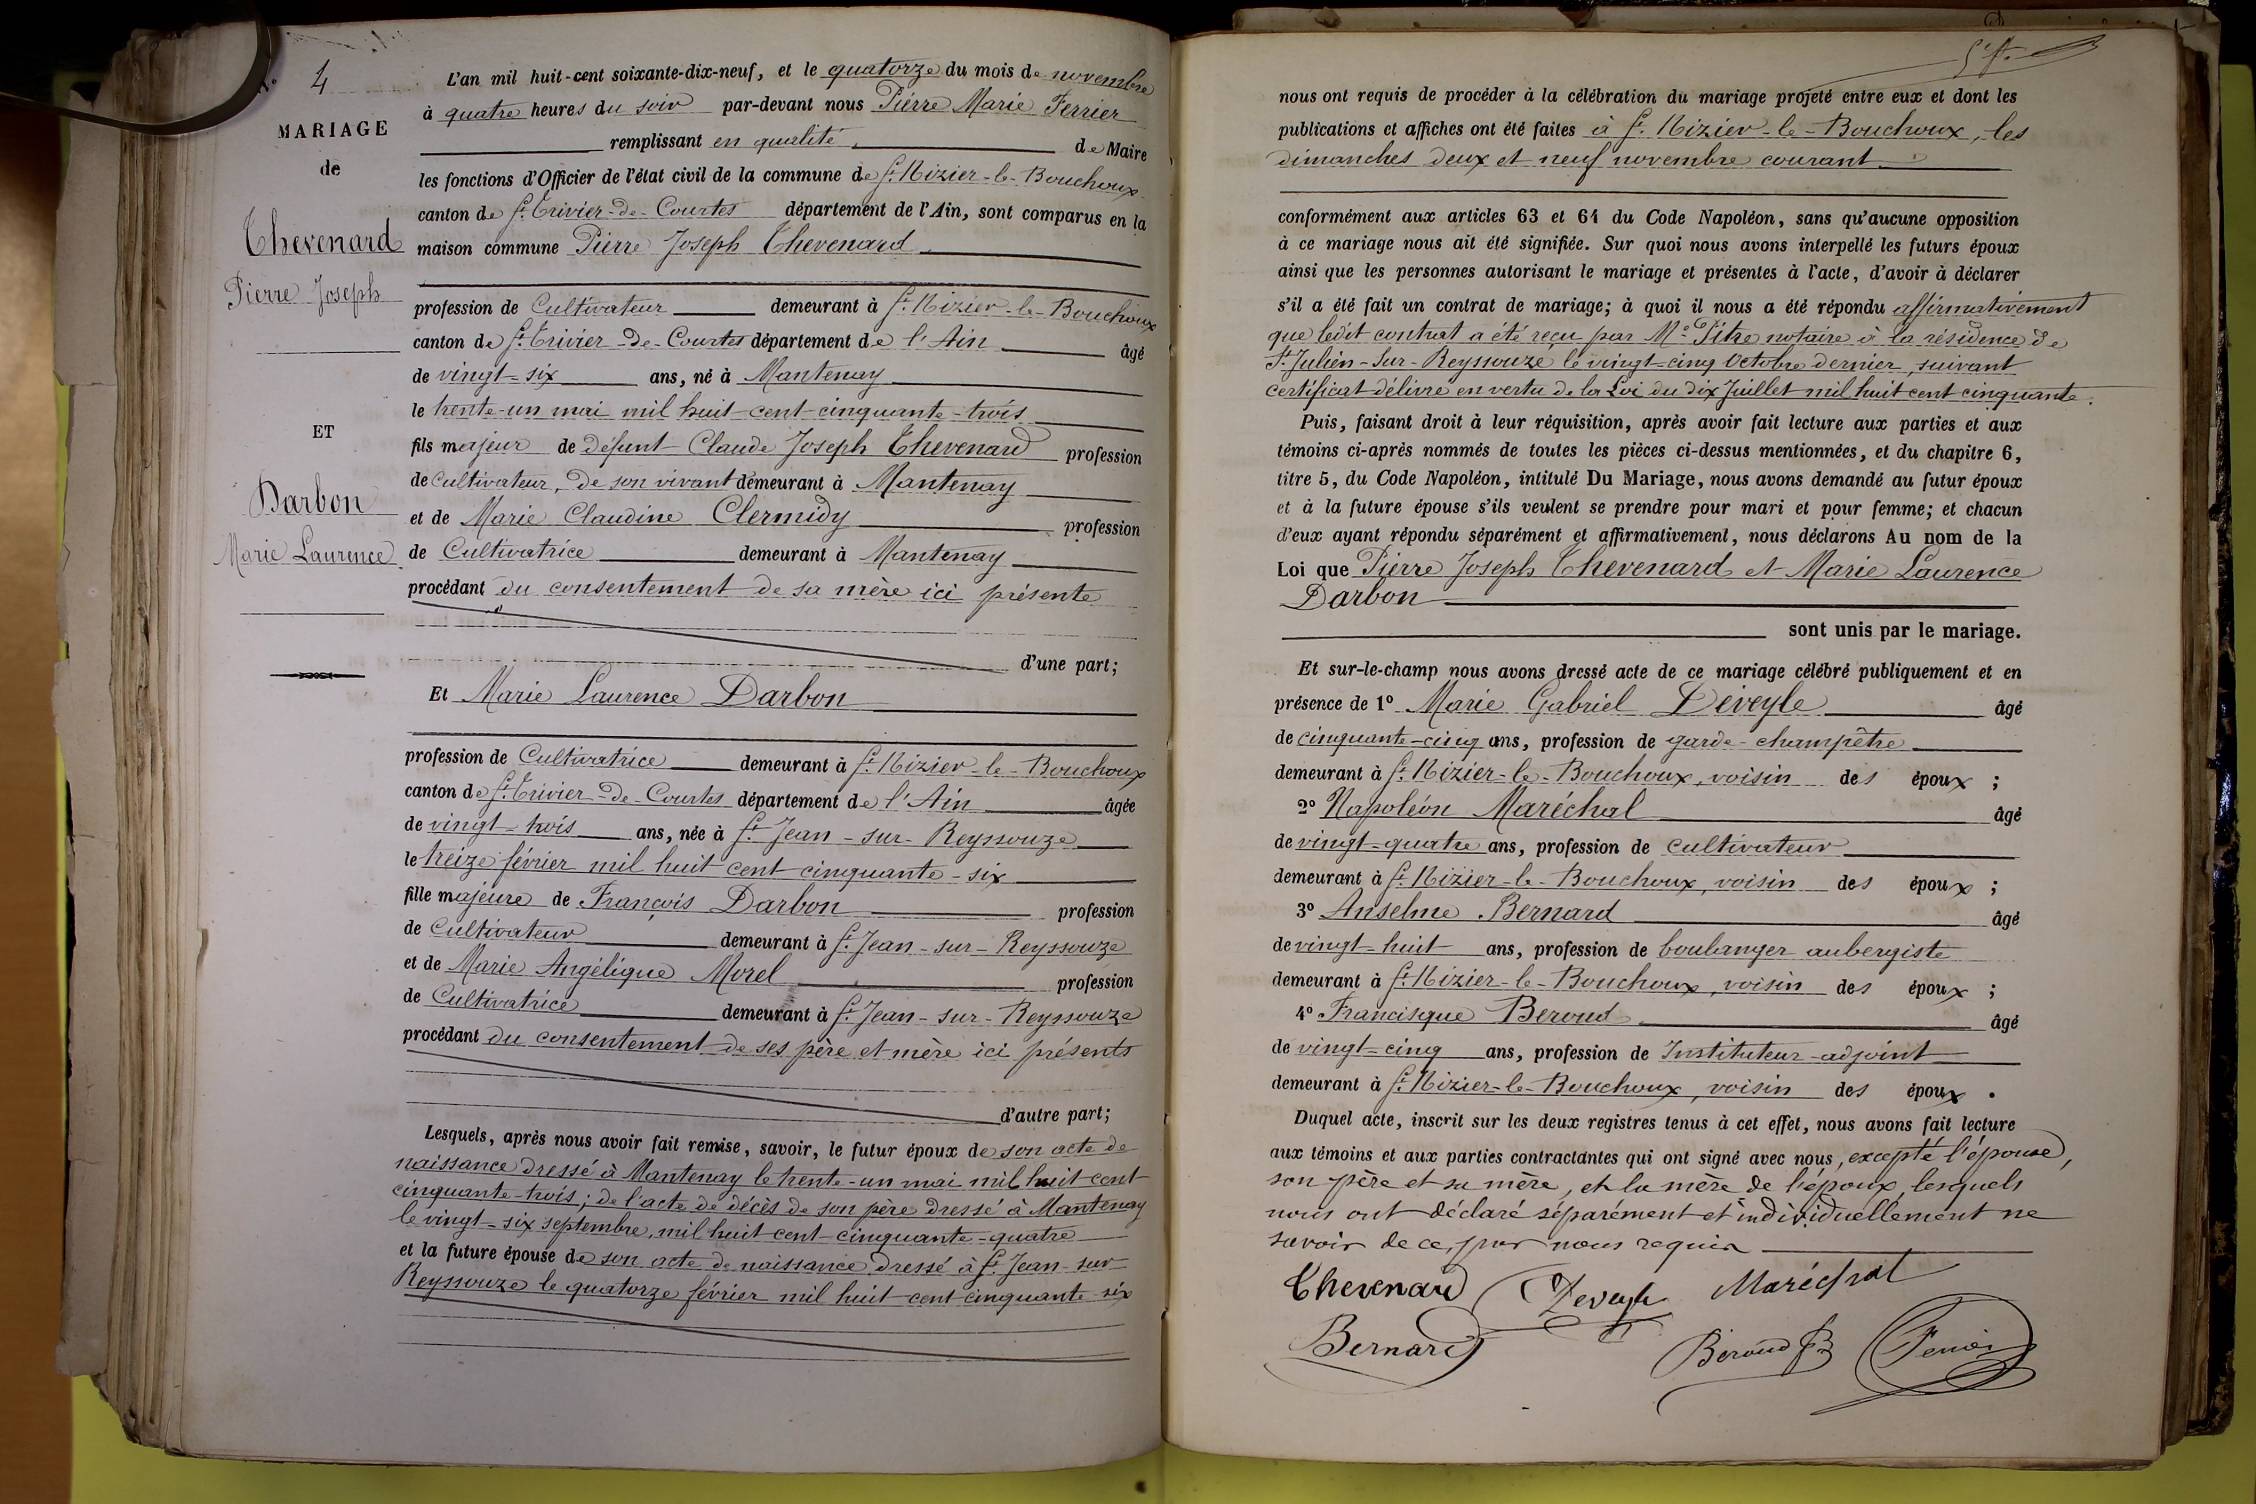 N° 4
MARIAGE
de
Thevenard
Pierre Joseph
ET
Darbon
Marie Laurence
L'an mil huit-cent soixante-dix-neuf, et le quatorze du mois de novembre
à quatre heures du soir par-devant nous Pierre Marie Ferrier
remplissant en qualité de Maire
les fonctions d'Officier de l'état civil de la commune de St. Nizier-le-Bouchoux
canton de St. Trivier-de-Courtes département de l'Ain, sont comparus en la
maison commune Pierre Joseph Thevenard
profession de Cultivateur demeurant à St. Nizier-le-Bouchoux
canton de St. Trivier-de-Courtes département de l'Ain âgé
de vingt-six ans, né à Mantenay
le trente-un mai mil huit-cent-cinquante-trois
fils majeur de défunt Claude Joseph Thevenard profession
de Cultivateur, de son vivant demeurant à Mantenay
et de Marie Claudine Clermidy profession
de Cultivatrice demeurant à Mantenay
procédant du consentement de sa mère ici présente
d'une part;
Et Marie Laurence Darbon
profession de Cultivatrice demeurant à St. Nizier-le-Bouchoux
canton de St. Trivier-de-Courtes département de l'Ain âgée
de vingt-trois ans, née à St. Jean-sur-Reyssouze
le treize février mil huit cent cinquante-six
fille majeure de François Darbon profession
de Cultivateur demeurant à St. Jean-sur-Reyssouze
et de Marie Angélique Morel profession
de Cultivatrice demeurant à St. Jean-sur-Reyssouze
procédant du consentement de ses père et mère ici présents
d'autre part;
Lesquels, après nous avoir fait remise, savoir, le futur époux de son acte de
naissance dressé à Mantenay le trente-un mai mil huit-cent
cinquante-trois; de l'acte de décès de son père dressé à Mantenay
le vingt-six septembre, mil huit cent-cinquante-quatre
et la future épouse de son acte de naissance dressé à St. Jean-sur
Reyssouze le quatorze février mil huit-cent-cinquante-six
nous ont requis de procéder à la célébration du mariage projeté entre eux et dont les
publications et affiches ont été faites à St. Nizier-le-Bouchoux, les
dimanches deux et neuf novembre courant
conformément aux articles 63 et 64 du Code Napoléon, sans qu'aucune opposition
à ce mariage nous ait été signifiée. Sur quoi nous avons interpellé les futurs époux
ainsi que les personnes autorisant le mariage et présentes à l'acte, d'avoir à déclarer
s'il a été fait un contrat de mariage; à quoi il nous a été répondu affirmativement
que ledit contrat a été reçu par Me. Pitre notaire à la résidence de
St. Julien-sur-Reyssouze le vingt-cinq Octobre dernier, suivant
certificat délivré en vertu de la Loi du dix Juillet mil huit cent cinquante.
Puis, faisant droit à leur réquisition, après avoir fait lecture aux parties et aux
témoins ci-après nommés de toutes les pièces ci-dessus mentionnées, et du chapitre 6,
titre 5, du Code Napoléon, intitulé Du Mariage, nous avons demandé au futur époux
et à la future épouse s'ils veulent se prendre pour mari et pour femme; et chacun
d'eux ayant répondu séparément et affirmativement, nous déclarons Au nom de la
Loi que Pierre Joseph Thevenard et Marie Laurence
Darbon
sont unis par le mariage.
Et sur-le-champ nous avons dressé acte de ce mariage célébré publiquement et en
présence de 1° Marie Gabriel Deveyle âgé
de cinquante-cinq ans, profession de garde-champêtre
demeurant à St. Nizier-le-Bouchoux, voisin des époux;
2° Napoléon Maréchal âgé
de vingt-quatre ans, profession de cultivateur
demeurant à St. Nizier-le-Bouchoux, voisin des époux;
3° Anselme Bernard âgé
de vingt-huit ans, profession de boulanger aubergiste
demeurant à St. Nizier-le-Bouchoux, voisin des époux;
4° Francisque Beroud âgé
de vingt-cinq ans, profession de Instituteur-adjoint
demeurant à St. Nizier-le-Bouchoux, voisin des époux.
Duquel acte, inscrit sur les deux registres tenus à cet effet, nous avons fait lecture
aux témoins et aux parties contractantes qui ont signé avec nous, excepté l'épouse,
son père et sa mère, et la mère de l'époux, lesquels
nous ont déclaré séparément et individuellement ne
savoir de ce, par nous requis
Thevenard Deveyle Maréchal
Bernard Béroud B Ferrier